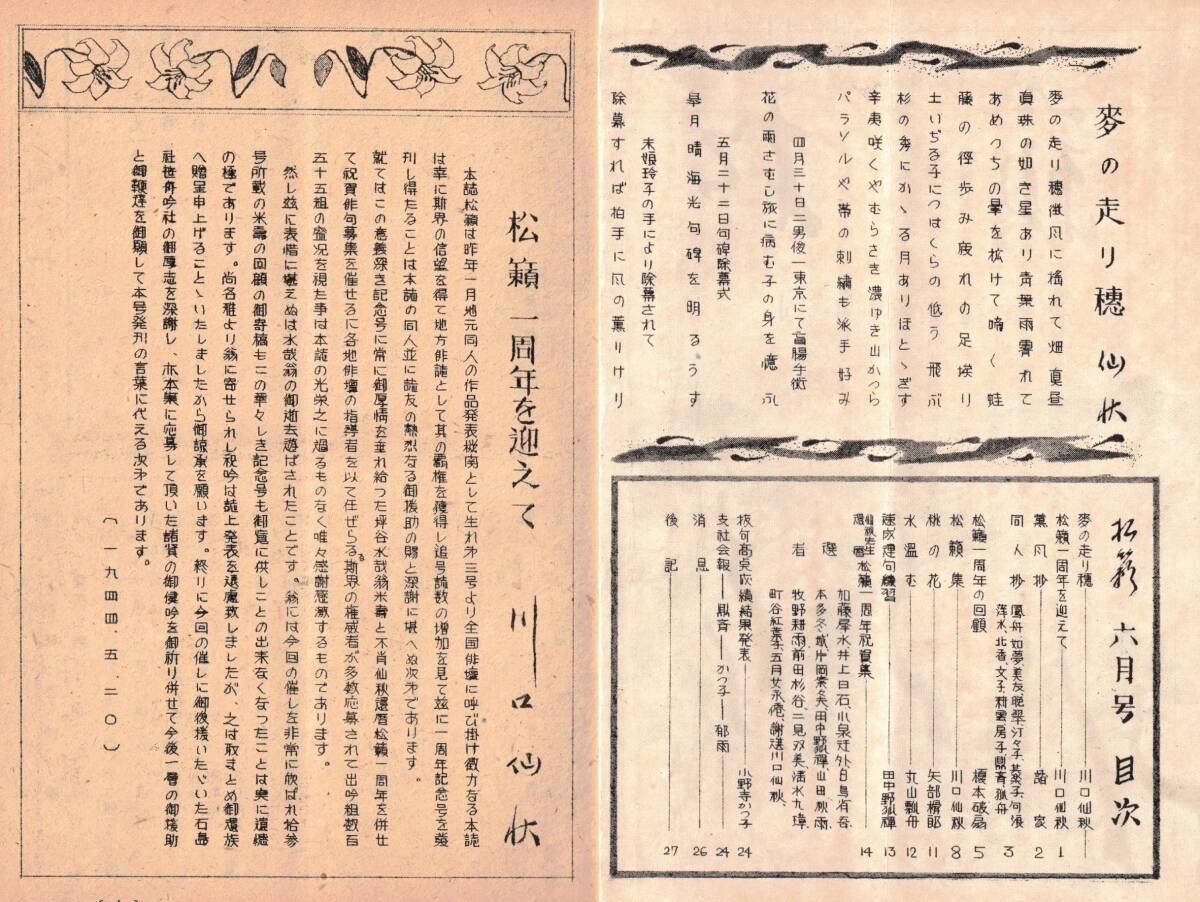 麥の走り穗 仙秋
麥の走り穗微風に搖れて畑眞昼
眞珠の如き星あり靑葉雨霽れて
あめつちの暈を拡げて啼く蛙
藤の徑歩み疲れの足淡り
土いぢる子につばくらの低う飛ぶ
杉の秀にかゝる月ありほとゝぎす
辛夷咲くやむらさき濃ゆき出かつら
パラソルや帯の刺繍も派手好み
四月三十日二男俊一東京にて盲腸手術
花の雨さむし旅に病む子の身を憶ふ
五月二十二日句碑除幕式
皐月晴海光句碑を明るうす
末娘玲子の手により除幕されて
除幕すれば拍手に風の薫りけり
松籟 六月号 目次
麥の走り穗 川口仙秋 1
松籟一周年を迎えて 川口仙秋 1
薫風抄 諸家 2
同人抄 3
松籟一周年の回顧 榎本破扇 5
松籟集 川口仙秋 8
桃の花 矢部榾郎 11
水温む 丸山瓢舟 12
速成連句練習 田中野狐禪 13
仙秋先生還暦松籟一周年祝賀集 14
選者
加藤犀水、井上日石、小泉迂外、白鳥省吾
本多冬城、片岡素々、田中野狐禪、山田秋雨
牧野耕雨、前田杉谷、二見双美、清水九璋
町谷紅葉子、五月女永俺、謝選川口仙秋
抜句高点成績結果発表 小野寺かつ子 24
支社会報 鼎斉 かつ子 郁雨 24
消息 26
後記 27
松籟一周年を迎えて 川口仙秋
本誌松籟は昨年一月地元同人の作品発表機関として生れ㐧三号より全国俳壇に呼び掛け微力なる本誌
は幸に斯界の信望を得て地方俳誌として其の覇権を獲得し追号誌数の増加を見て茲に一周年記念号を発
刊し得たることは本誌の同人並に誌友の熱烈なる御援助の賜と深謝に堪へぬ次㐧であります。
就てはこの意義深き記念号に常に御厚情を垂れ給つた坪谷水哉翁米壽と不肖仙秋還暦松籟一周年を併せ
て祝賀俳句募集を催せるに各地俳壇の指導者を以て任ぜらる斯界の権威者が多数応募されて出吟組数百
五十五組の盛況を視た事は本誌の光栄之に過るものなく唯々感謝感激するものであります。
然し茲に哀悼に堪えぬは水哉翁の御逝去遊ばされたことです。翁には今回の催しを非常に欣ばれ拾参
号所載の米壽の回顧の御寄稿もこの華々しき記念号も御覧に供しことの出来なくなつたことは実に遺憾
の極であります。尚各雅より翁に寄せられし祝吟は誌上発表を遠慮致しましたが、之は取まとめ御遺族
へ贈呈申上げることゝいたしましたから御諒承を願います。終りに今回の催しに御後援いたゞいた石島
社笹舟吟社の御厚志を深謝し、亦本集に応募して頂いた諸賢の御健吟を御祈り併せて今後一層の御援助
と御鞭撻を御願して本号発刊の言葉に代える次㐧であります。
〔一九四四、五、二〇〕